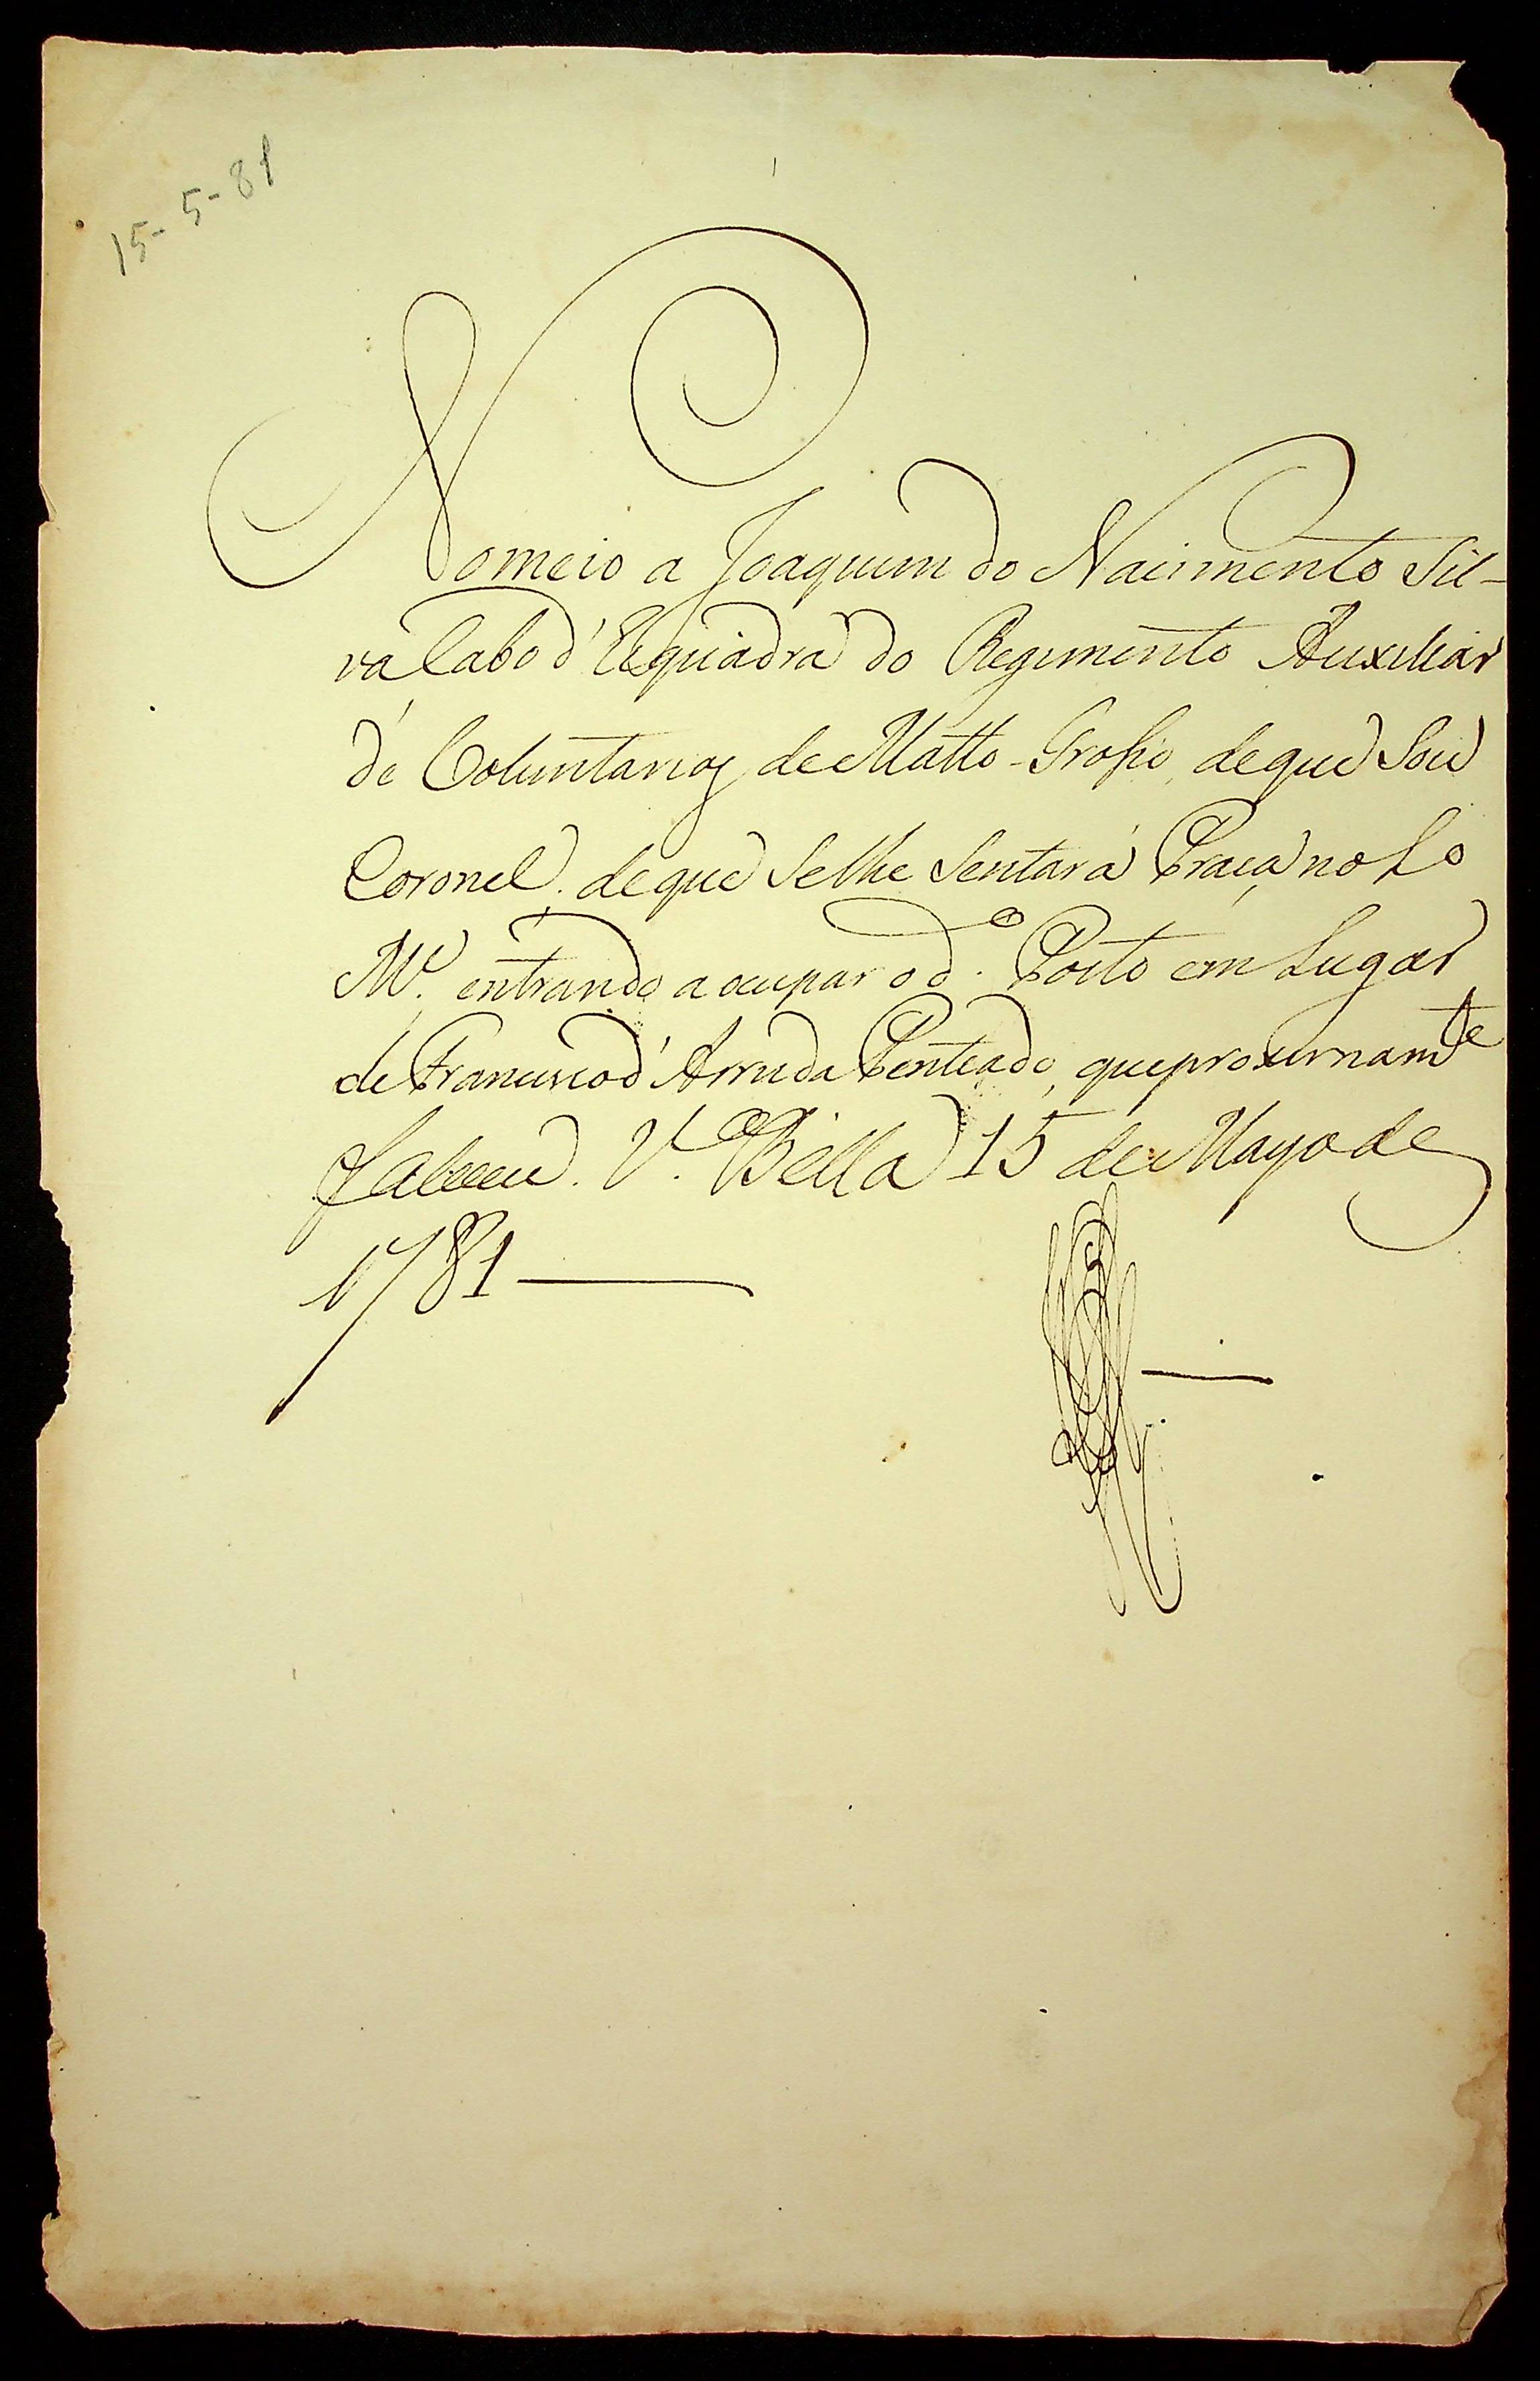 15-5-81
Nomeio a Joaquim do Nacimento Sil-
va Cabo d'Esquadra do Regimento Auxiliar
de Voluntarios de Matto-Grosso, de que Sou
Coronel. de que Selhe Sentará Praça no L.o
M.e entrando a ocupar o d.o Posto em Lugar
de Francisco d'Arruda Penteado, que proximam.te
faleceu. V.a Bella 15 de Mayo de
1781